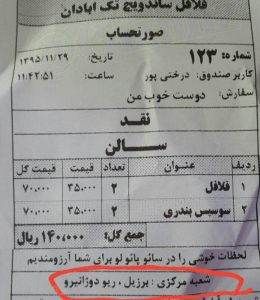 فلافل ساندویچ تک ابادان
صورتحساب
شماره: ۱۲۳ تاریخ: ۱۳۹۵/۱۱/۲۹
کاربر صندوق: درختی پور ساعت: ۱۱:۴۲:۵۱
سفارش: دوست خوب من
نقد
سالن
ردیف عنوان تعداد قیمت قیمت کل
۱ فلافل ۲ ۳۵.۰۰۰ ۷۰.۰۰۰
۲ سوسیس بندری ۲ ۳۵.۰۰۰ ۷۰.۰۰۰
جمع کل: ۱۴۰.۰۰۰ ریال
لحظات خوشی را در سائو پائولو برای شما آرزومندیم
شعبه مرکزی: برزیل، ریو دوژانیرو